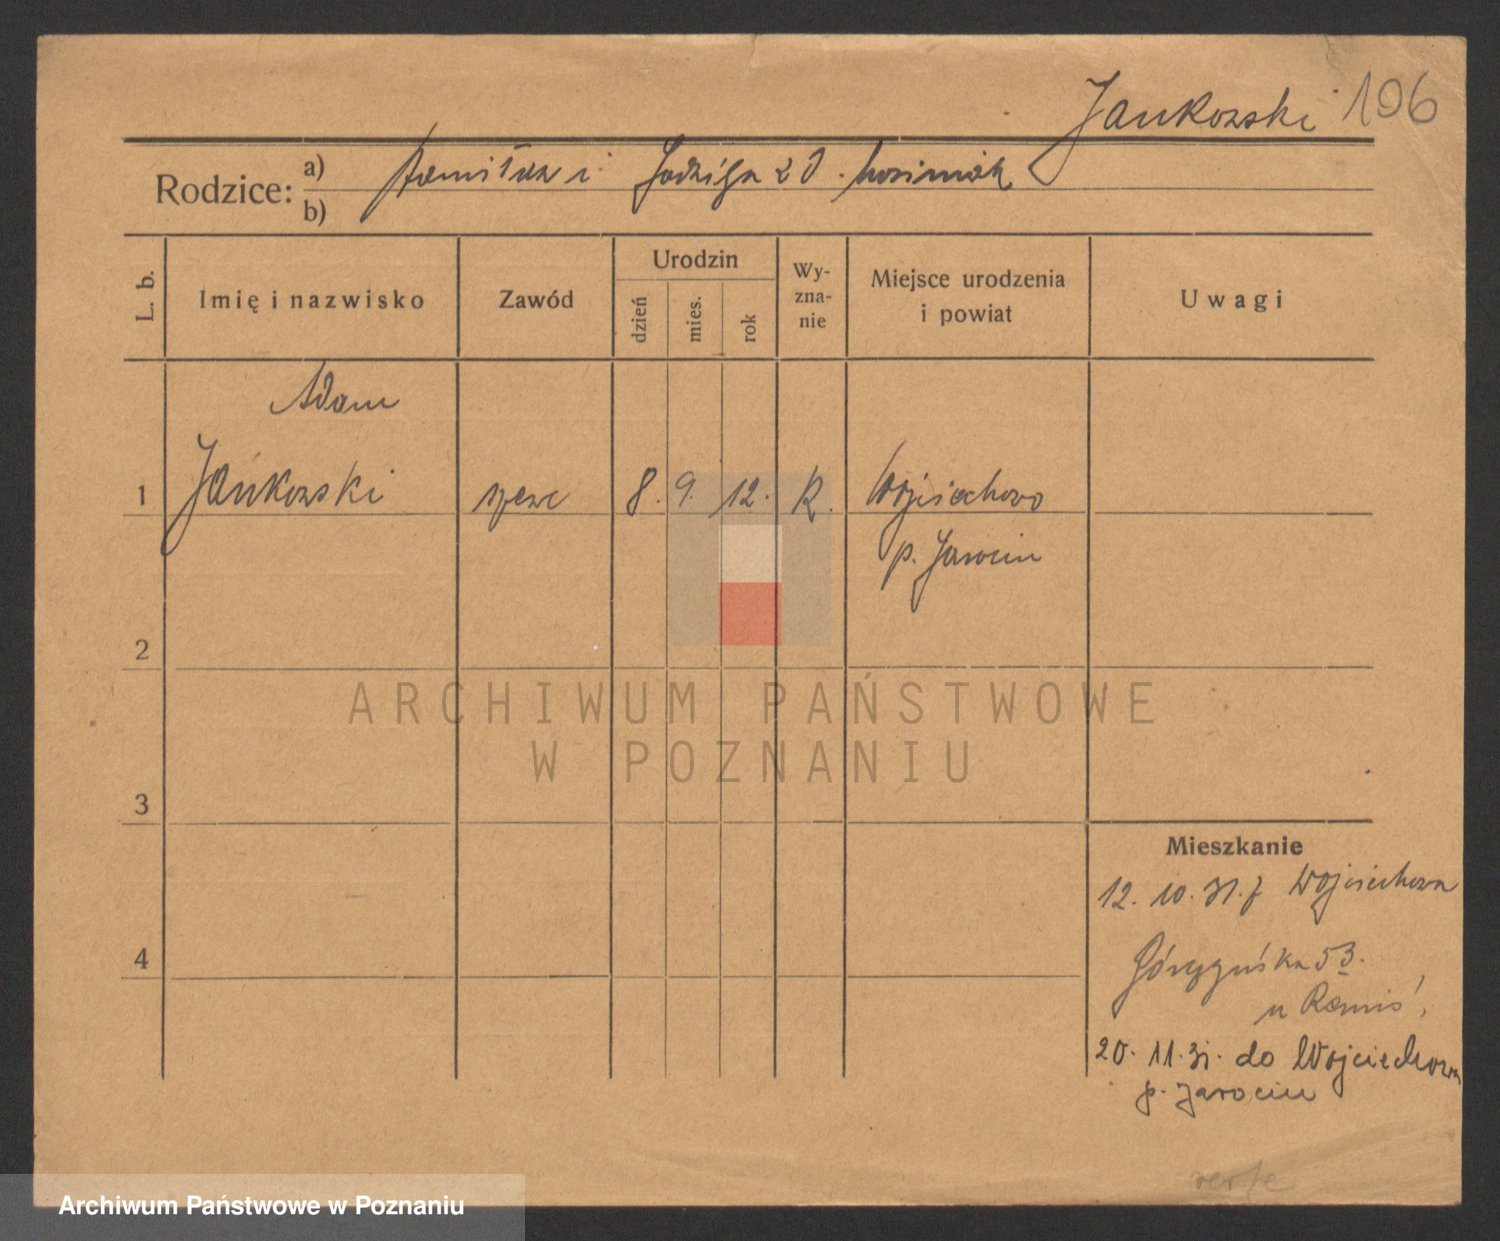 Jankowski 106
Rodzice:
a) Stanisław i Jadwiga z d.
b)
L. b.
Imię i nazwisko
Zawód
Urodzin
dzień
mies.
rok
Wy-
zna-
nie
Miejsce urodzenia
i powiat
Uwagi
Adam
1 Jankowski szewc 8. 9. 12. R. Wojciechowo
p. Jarocin
2
3
4
Mieszkanie
12. 10. 31. z Wojciechowa
53.
u
20. 11. 31. do Wojciechowa
p. Jarocin
verte
ARCHIWUM PAŃSTWOWE
W POZNANIU
Archiwum Państwowe w Poznaniu